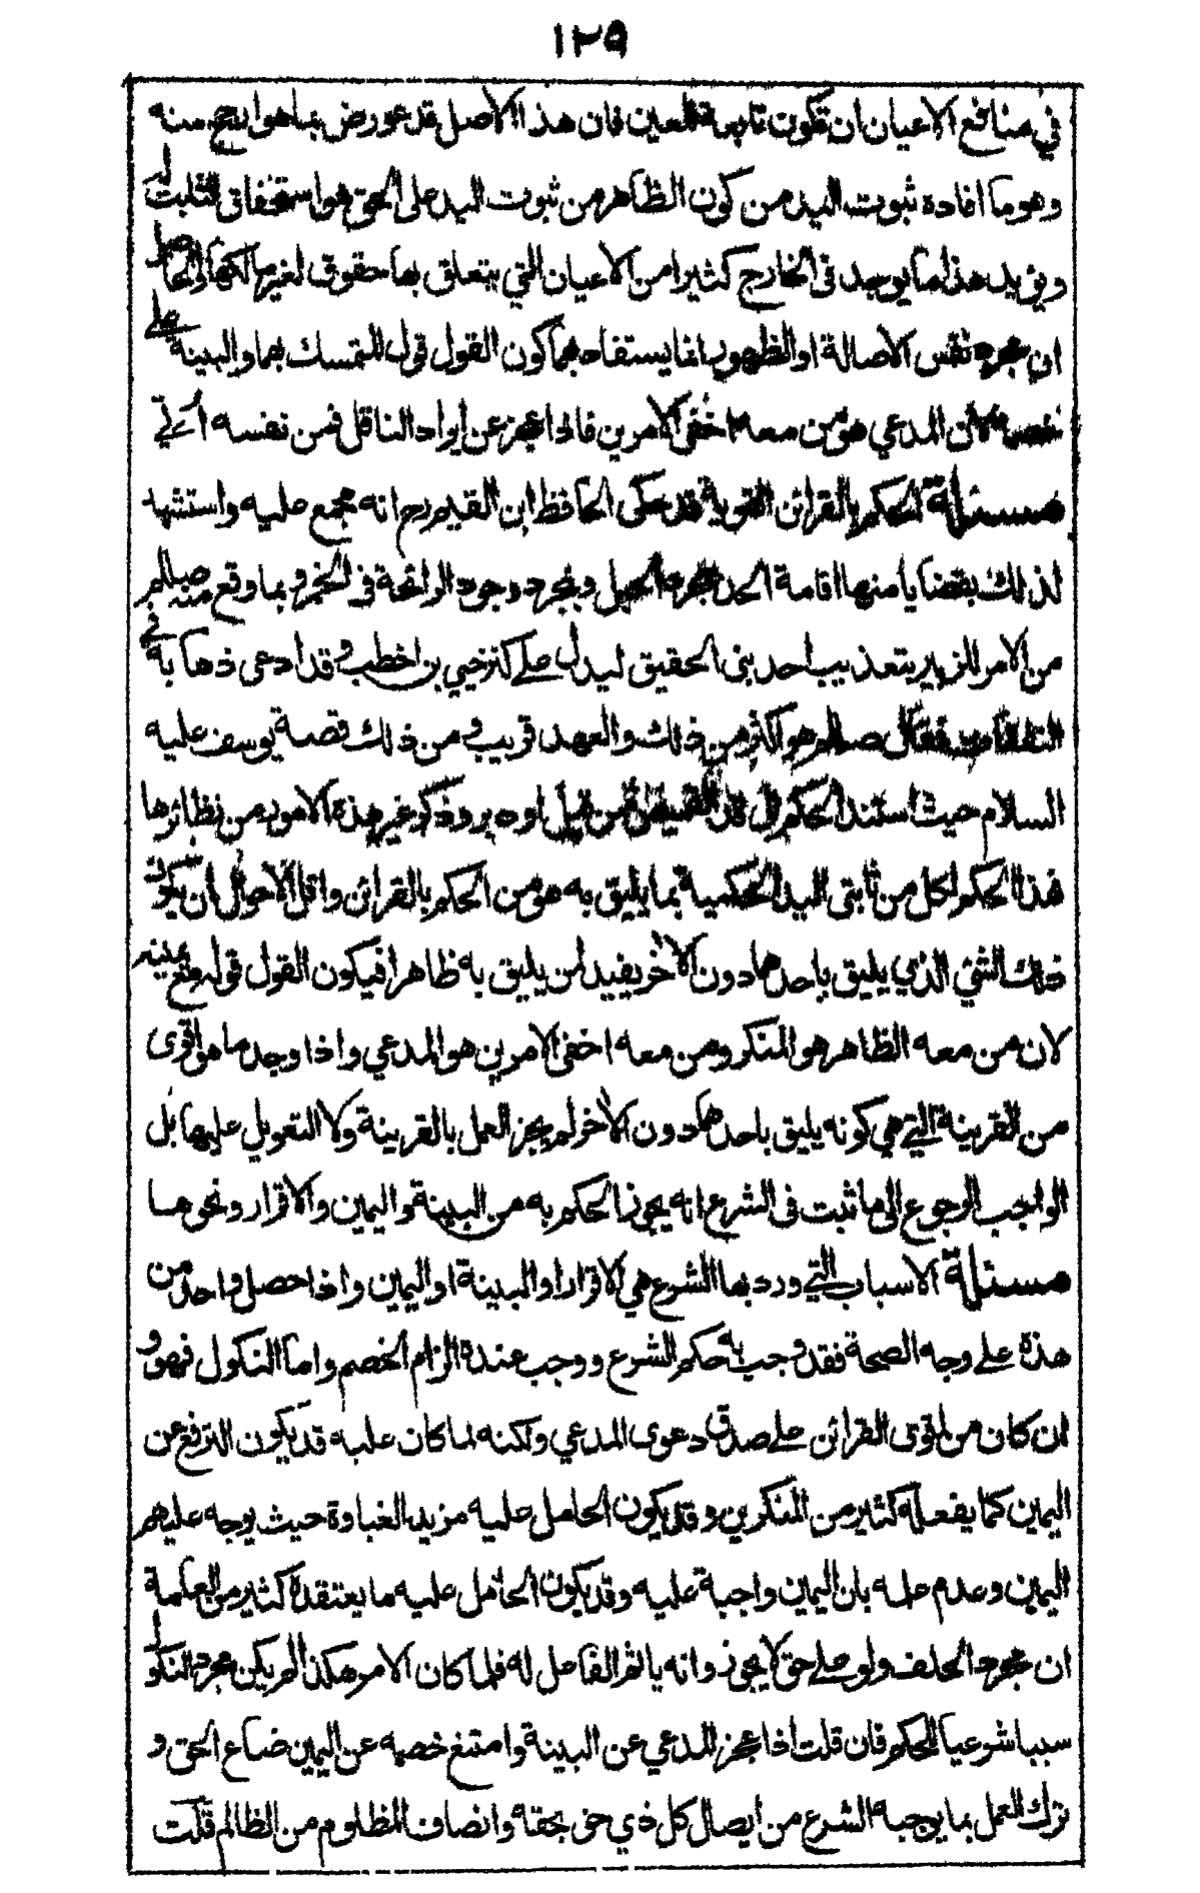 ١٢٩
في منافع الاعيان ان تكون تابعة للعين فان هذا الاصل قد عورض بما هو ارجح منه
وهو ما افاده ثبوت اليد من كون الظاهر من ثبوت اليد على الحق هو استحقاق الثابت له
ويؤيد هذا ما يوجد فى الخارج كثيرا من الاعيان التي يتعلق بها حقوق لغير مالكها والحاصل
ان مجرد نفس الاصالة او الظهور انما يستفاد بهما كون القول قول المتمسك بهما والبينة على
خصمه لان المدعي هو من معه اخفى الامرين فاذا عجز عن ايراد الناقل فمن نفسه أتي
مسئلة الحكم بالقرائن القوية قد حكى الحافظ ابن القيم رح انه مجمع عليه واستشهد
لذلك بقضايا منها اقامة الحد بمجرد الحبل وبمجرد وجود الرائحة فى الخمر وبما وقع منه صللم
من الامر للزبير بتعذيب احد بني الحقيق ليدل على كنز حيي بن اخطب وقد ادعى ذهابه في
النفقات فقال صللم هو اكثر من ذلك والعهد قريب ومن ذلك قصة يوسف عليه
السلام حيث استند الحكم الى قد القميص من قبل او دبر وذكر غير هذه الامور من نظائرها
فذا الحكم لكل من ثابتى اليد الحكمية بما يليق به هو من الحكم بالقرائن واقل الاحوال ان يكون
ذلك الشيء الذي يليق باحدهما دون الآخر يفيد لمن يليق به ظاهرا فيكون القول قوله مع يمينه
لان من معه الظاهر هو المنكر ومن معه اخفى الامرين هو المدعي واذا وجد ما هو اقوى
من القرينة التي هي كونه يليق باحدهما دون الآخر لم يجز العمل بالقرينة ولا التعويل عليها بل
الواجب الرجوع الى ما ثبت فى الشرع انه يجوز الحكم به من البينة واليمين والاقرار ونحوها
مسئلة الاسباب التي ورد بها الشرع هي الاقرار او البينة او اليمين واذا حصل واحد من
هذه على وجه الصحة فقد وجب به حكم الشرع ووجب عنده الزام الخصم واما النكول فهو و
ان كان من اقوى القرائن على صدق دعوى المدعي ولكنه لما كان عليه قد يكون الترفع عن
اليمين كما يفعله كثير من المنكرين وقد يكون الحامل عليه مزيد الغباوة حيث يوجه عليهم
اليمين وعدم علمه بان اليمين واجبة عليه وقد يكون الحامل عليه ما يعتقده كثير من العامة
ان مجرد الحلف ولو على حق لا يجوز وانه يأثم الفاعل له فلما كان الامر هكذا لم يكن مجرد النكول
سببا شرعيا للحكم فان قلت اذا عجز المدعي عن البينة وامتنع خصمه عن اليمين ضاع الحق و
ترك العمل بما يوجبه الشرع من ايصال كل ذي حق بحقه وانصاف المظلوم من الظالم قلت